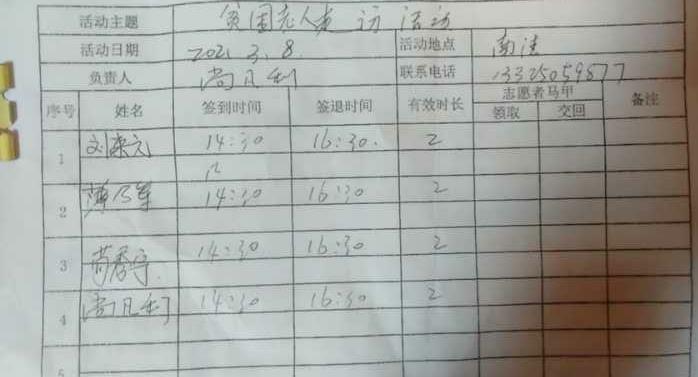 活动主题 贫困老人走访活动
活动日期 2021.3.8 活动地点 南洼
负责人 尚凡利 联系电话 13325059877
序号 姓名 签到时间 签退时间 有效时长 志愿者马甲 备注
领取 交回
1 刘来元 14:30 16:30. 2
2 薄乃军 14:30 16:30 2
3 14:30 16:30 2
4 尚凡利 14:30 16:30 2
5